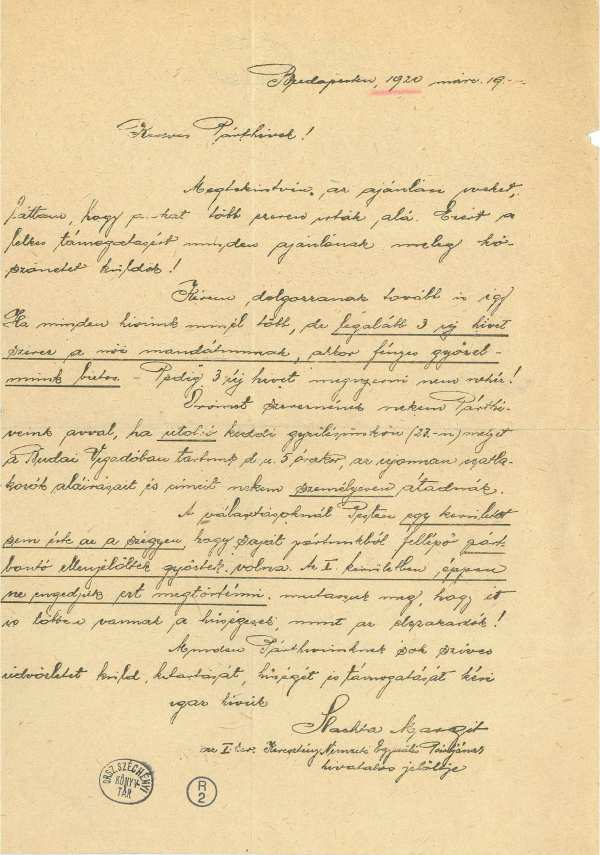 Budapesten, 1920 márc. 19.
Kedves Párthívek!
Megtekintvén az ajánlási íveket,
láttam, hogy azokat több ezeren írták alá. Ezért a
lelkes támogatásért minden ajánlónak meleg kö-
szönetet küldök!
Kérem, dolgozzanak tovább is így
Ha minden hívünk minél több, de legalább 3 új hívet
szerez a női mandátumnak, akkor fényes győzel-
münk biztos. - Pedig 3 új hívet megnyerni nem nehéz!
Örömet szereznének nekem Párthí-
veink avval, ha utolsó keddi gyűlésünkön (23.-án) melyet
a Budai Vigadóban tartunk d. u. 5 órakor, az újonnan csatla-
kozók aláírásait és címeit nekem személyesen átadnák.
A választásoknál Pesten egy kerületet
sem érte az a szégyen, hogy saját pártunkból fellépő párt-
bontó ellenjelöltek győztek volna. Az I. kerületben éppen
ne engedjük ezt megtörténni. mutassuk meg, hogy itt
is többen vannak a hűségesek, mint az elszakadók!
Minden Párthívünknek sok szíves
üdvözletet küld, kitartását, hűségét és támogatását kéri
igaz hívük
Slachta Margit
az I. ker. Keresztény Nemzeti Egyesülés Pártjának
hivatalos jelöltje
ORSZ. SZÉCHÉNYI
KÖNYV-
TÁR
R
2